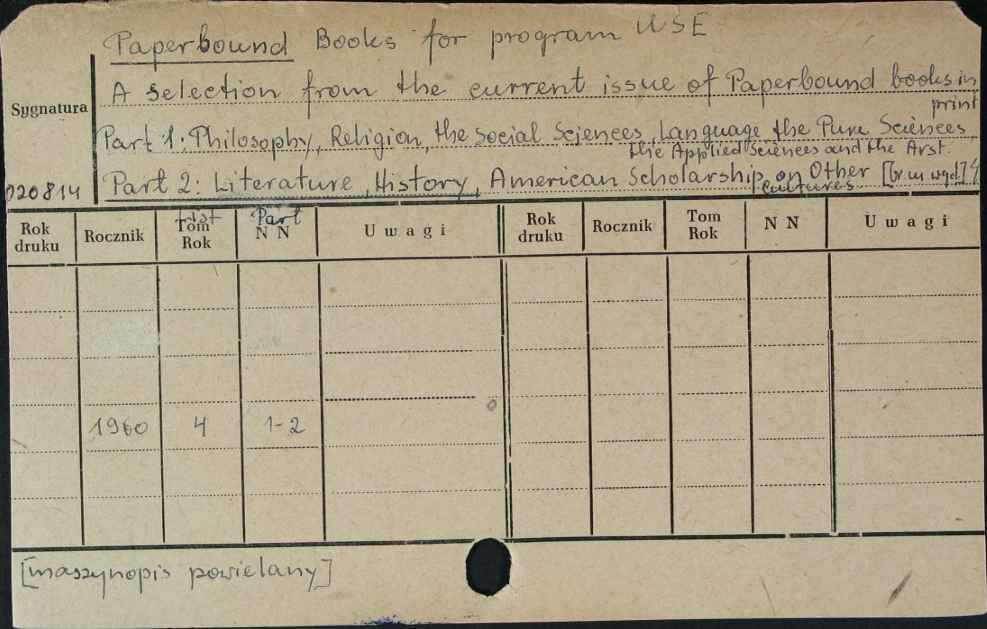 Paperbound Books for program USE
A selection from the current issue of Paperbound books in
print
Sygnatura
Part 1: Philosophy, Religion, the Social Sciences, Language the Pure Sciences,
the Applied Sciences and the Arst.
020814
Part 2: Literature, History, American Scholarship on Other [br.m wyd.]
Cultures
Rok druku Rocznik Tom Rok Part N N Uwagi Rok druku Rocznik Tom Rok N N Uwagi
1960 4 1-2
[maszynopis powielany]